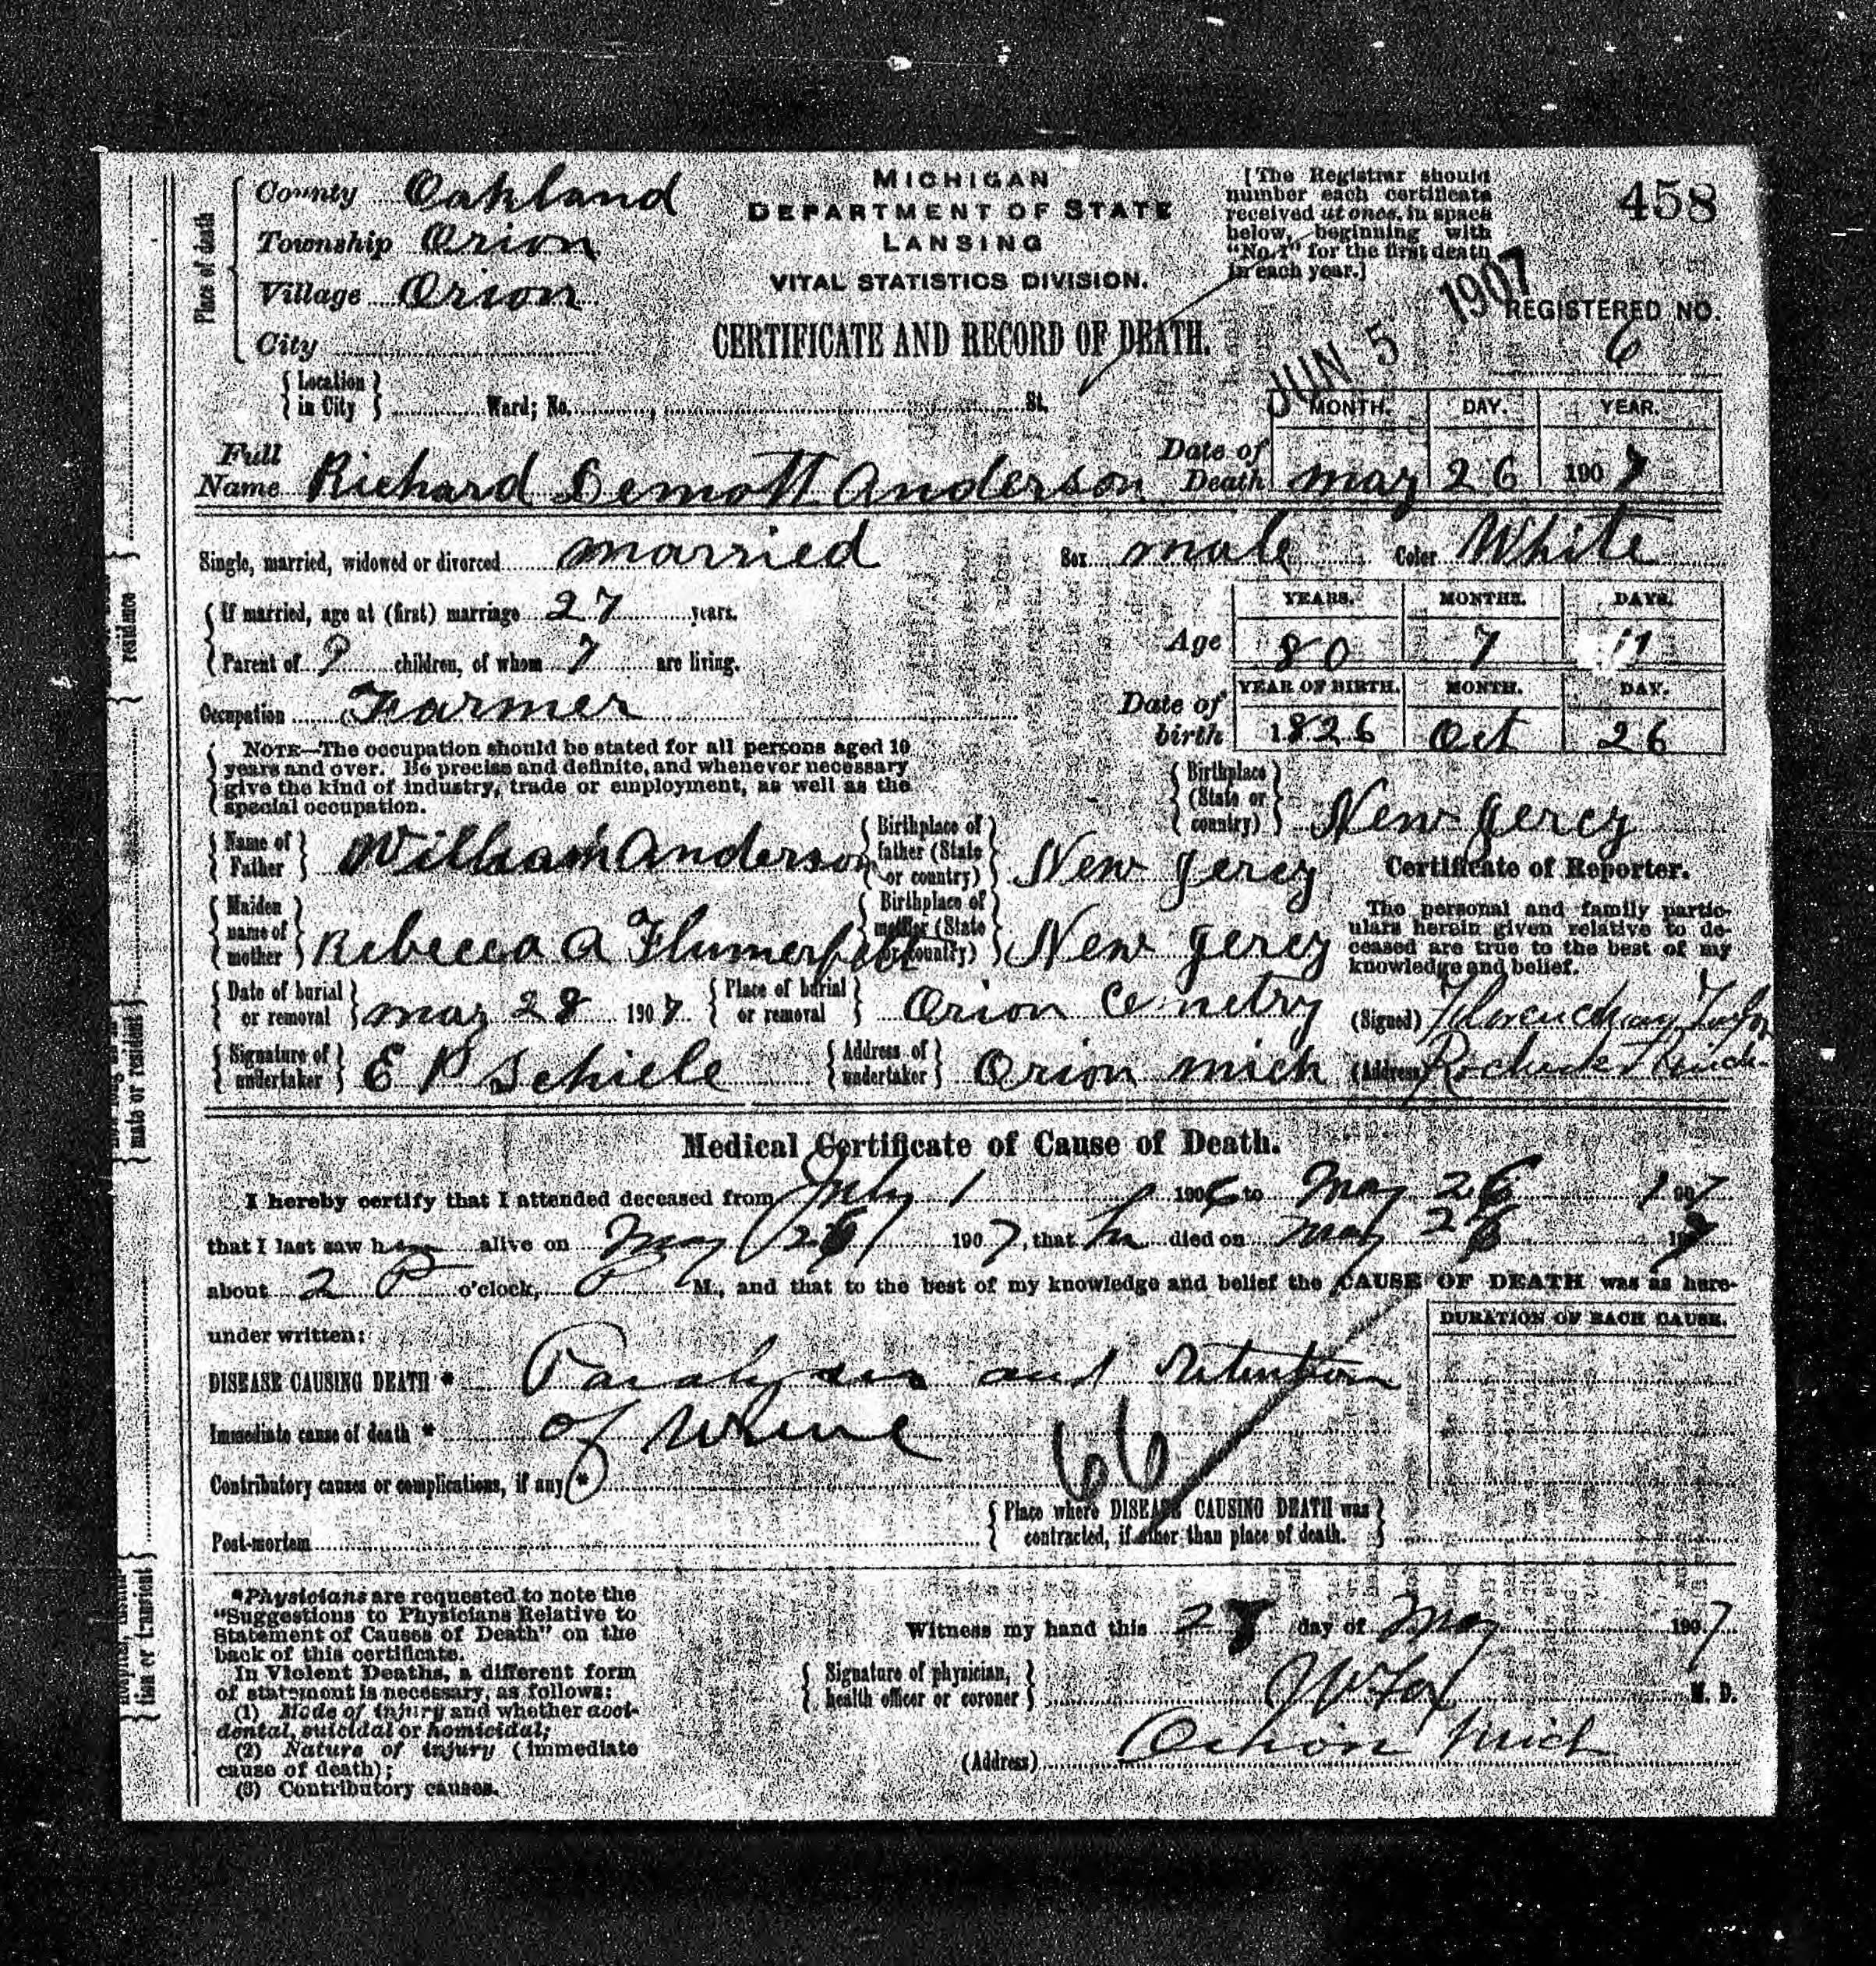 County Oakland
Township Orion
Village Orion
City
Place of death
MICHIGAN
DEPARTMENT OF STATE
LANSING
VITAL STATISTICS DIVISION.
CERTIFICATE AND RECORD OF DEATH.
[The Registrar should
number each certificate
received at once, in space
below, beginning with
"No. 1" for the first death
in each year.]
458
JUN 5 1907
REGISTERED NO.
6
Location in City Ward; No. St.
Full Name Richard Demott Anderson
Date of Death
MONTH. DAY. YEAR.
May 26 1907
Single, married, widowed or divorced married Sex male Color White
If married, age at (first) marriage 27 years.
Parent of children, of whom 7 are living.
Age
YEARS. MONTHS. DAYS.
80 7
Occupation Farmer
Date of birth
YEAR OF BIRTH. MONTH. DAY.
1826 Oct 26
NOTE—The occupation should be stated for all persons aged 10
years and over. Be precise and definite, and whenever necessary
give the kind of industry, trade or employment, as well as the
special occupation.
Birthplace (State or country) New Jercy
Name of Father William Anderson Birthplace of father (State or country) New Jercy
Maiden name of mother Rebecca A Birthplace of mother (State or country) New Jercy
Certificate of Reporter.
The personal and family partic-
ulars herein given relative to de-
ceased are true to the best of my
knowledge and belief.
Date of burial or removal May 28 1907 Place of burial or removal Orion Cemetry
(Signed)
Signature of undertaker E P Schiele Address of undertaker Orion Mich
(Address)
residence
mate or resident
tion or transient
Medical Certificate of Cause of Death.
I hereby certify that I attended deceased from July 1 1906 to May 26 1907
that I last saw h alive on May 26 1907, that he died on May 26 1907
about 2 P o'clock, P M., and that to the best of my knowledge and belief the CAUSE OF DEATH was as here-
under written:
DURATION OF EACH CAUSE.
DISEASE CAUSING DEATH * Paralysis and retention
Immediate cause of death * of urine
66
Contributory causes or complications, if any *
Post-mortem
Place where DISEASE CAUSING DEATH was
contracted, if other than place of death.
*Physicians are requested to note the
"Suggestions to Physicians Relative to
Statement of Causes of Death" on the
back of this certificate.
In Violent Deaths, a different form
of statement is necessary, as follows:
(1) Mode of injury and whether acci-
dental, suicidal or homicidal;
(2) Nature of injury (immediate
cause of death);
(3) Contributory causes.
Witness my hand this 28 day of May 1907
Signature of physician, health officer or coroner M. D.
(Address) Orion Mich